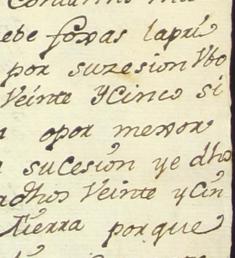 ebe foxas lapri
por suzesion Vbo
Veinte Ycinco si
opor menor
sucesion ye dhos
adhos Veinte ycin
tierra porque